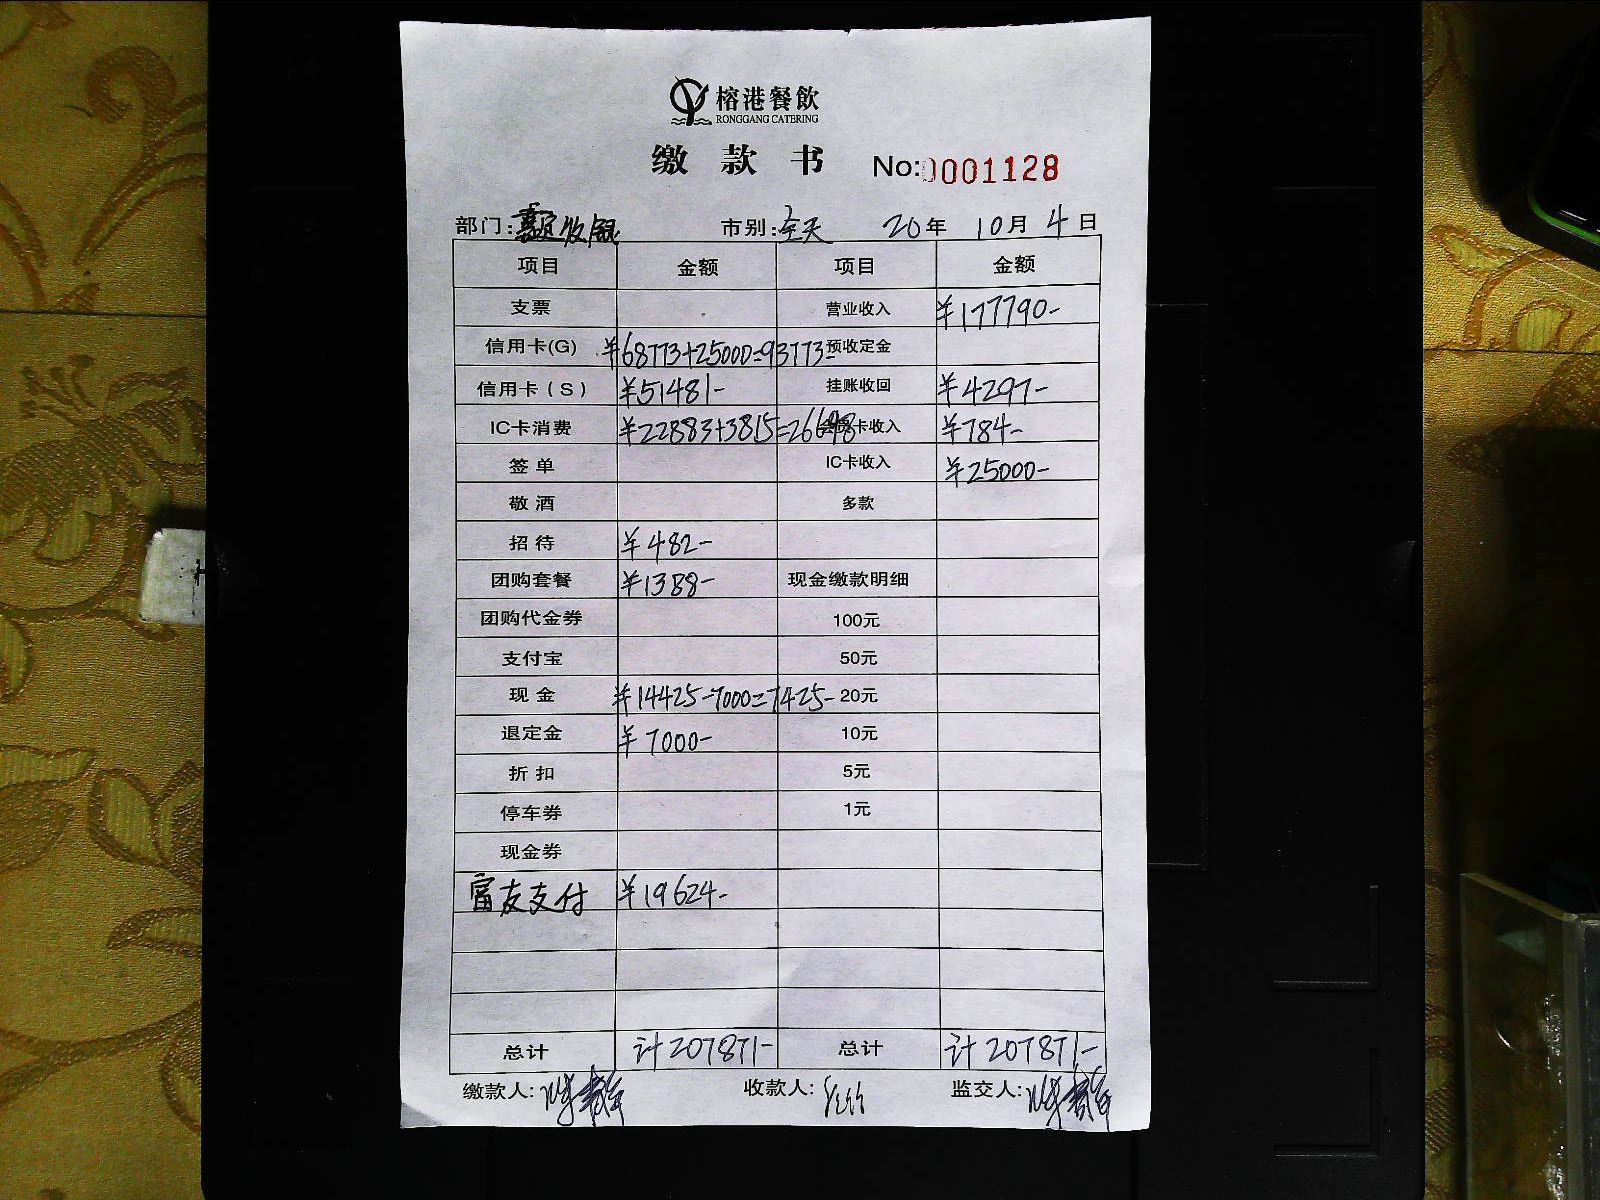 榕港餐飲
RONGGANG CATERING
缴款书 No:0001128
部门:嘉定收银 市别:全天 20年10月4日
项目 金额 项目 金额
支票 营业收入 ¥177790-
信用卡(G) ¥68773+25000=93773- 预收定金
信用卡(S) ¥51481- 挂账收回 ¥4297-
IC卡消费 ¥22883+3815=26698 卡收入 ¥784-
签单 IC卡收入 ¥25000-
敬酒 多款
招待 ¥482-
团购套餐 ¥1388- 现金缴款明细
团购代金券 100元
支付宝 50元
现金 ¥14425-7000=7425- 20元
退定金 ¥7000- 10元
折扣 5元
停车券 1元
现金券
富友支付 ¥19624-
总计 计207871- 总计 计207871-
缴款人: 收款人: 监交人: